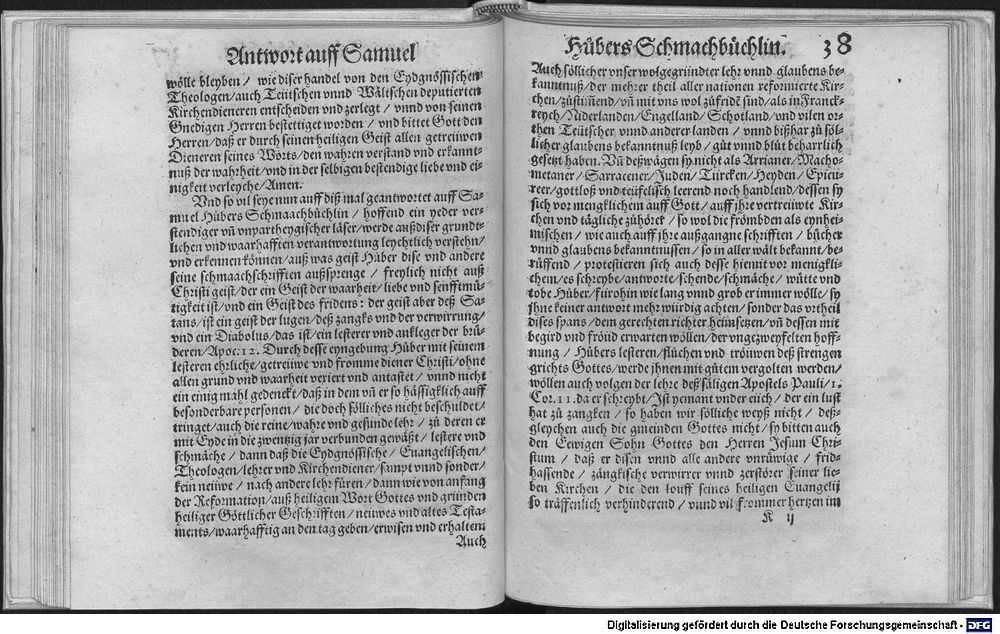 Antwort auff Samuel
wölle bleyben / wie diser handel von den Eydgnössischen
Theologen/auch Teütschen vnnd Wältschen deputierten
Kirchendieneren entscheiden vnd zerlegt / vnnd von seinen
Gnedigen Herren bestettiget worden / vnd bittet Gott den
Herren/daß er durch seinen heiligen Geist allen getreüwen
Dieneren seines Worts/den wahren verstand vnd erkannt-
nuß der wahrheit/vnd in der selbigen bestendige liebe vnd ei-
nigkeit verleyche/Amen.
Vnd so vil seye nun auff diß mal geantwortet auff Sa-
muel Hůbers Schmaachbüchlin / hoffend ein yeder ver-
stendiger vñ vnpartheygischer läser/werde auß diser grundt-
lichen vnd waarhafften verantwortung leychtlich verstehn/
vnd erkennen können/auß was geist Hůber dise vnd andere
seine schmaachschrifften außsprenge / freylich nicht auß
Christi geist/der ein Geist der waarheit/liebe vnd senfftmů-
tigkeit ist/vnd ein Geist des fridens: der geist aber deß Sa-
tans/ist ein geist der lugen/deß zangks vnd der verwirrung/
vnd ein Diabolus/das ist/ein lesterer vnd ankleger der brü-
deren/Apoc.12. Durch desse eyngebung Hůber mit seinem
lesteren ehrliche/getreüwe vnd fromme diener Christi/ohne
allen grund vnd waarheit vexiert vnd antastet / vnnd nicht
ein einig mahl gedenckt/daß in dem vñ er so hässigklich auff
besonderbare personen / die doch sölliches nicht beschuldet/
tringet/auch die reine/wahre vnd gesunde lehr / zů deren er
mit Eyde in die zwentzig jar verbunden gewäßt / lestere vnd
schmäche / dann daß die Eydgnössische / Euangelischen/
Theologen/lehrer vnd Kirchendiener/sampt vnnd sonder/
kein neüwe / nach andere lehr füren/dann wie von anfang
der Reformation/auß heiligem Wort Gottes vnd gründen
heiliger Göttlicher Geschrifften / neuwes vnd altes Testa-
ments/waarhafftig an den tag geben/erwisen vnd erhaltem
Auch
Hůbers Schmachbüchlin. 38
Auch söllicher vnser wolgegründter lehr vnnd glaubens be-
kanntnuß/der mehrer theil aller nationen reformierte Kir-
chen/zůstim̃end/vñ mit vns wol zůfridẽ sind/als in Franck-
reych/Niderlanden/Engelland/Schotland/vnd vilen or-
then Teütscher vnnd anderer landen / vnnd bißhar zů söl-
licher glaubens bekanntnuß leyb / gůt vnnd blůt beharrlich
gesetzt haben. Vñ deßwägen sy nicht als Arrianer/Macho-
metaner/Sarracener/Juden/Türcken/Heyden/Epicu-
reer/gottloß vnd teüfelisch leerend noch handlend/dessen sy
sich vor mengklichem auff Gott/auff jhre vertreüwte Kir-
chen vnd tägliche zůhörer / so wol die frömbden als eynhei-
mischen / wie auch auff jhre außgangne schrifften / bücher
vnnd glaubens bekanntnussen / so in aller wält bekannt/be-
rüffend / protestieren sich auch desse hiemit vor menigkli-
chem/es schreybe/antworte/schende/schmäche / wütte vnd
tobe Hůber/fürohin wie lang vnnd grob er immer wölle/sy
jhne keiner antwort mehr würdig achten/sonder das vrtheil
dises spans/dem gerechten richter heimsetzen/vñ dessen mit
begird vnd fröud erwarten wöllen/der vngezweyfelten hoff-
nung / Hůbers lesteren/flůchen vnd tröuwen deß strengen
grichts Gottes/werde jhnen mit gůtem vergolten werden/
wöllen auch volgen der lehre deß säligen Apostels Pauli/1.
Cor.11. da er schreybt/Ist yemant vnder eüch / der ein lust
hat zů zangken / so haben wir sölliche weyß nicht / deß-
gleychen auch die gmeinden Gottes nicht/sy bitten auch
den Eewigen Sohn Gottes den Herren Jesum Chri-
stum / daß er disen vnnd alle andere vnrůwige / frid-
hassende / zängkische verwirrer vnnd zerstörer seiner lie-
ben Kirchen / die den louff seines heiligen Euangelij
so träffenlich verhinderend / vnnd vil frommer hertzen im
K ij
Digitalisierung gefördert durch die Deutsche Forschungsgemeinschaft - DFG